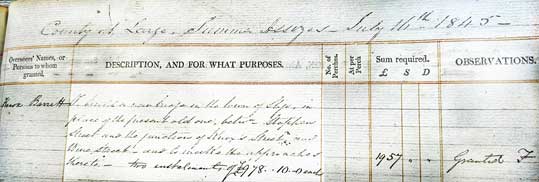 County at Large. Summer Assizes - July 16th 1845 -
Overseers' Names, or
Persons to whom
granted.
DESCRIPTION, AND FOR WHAT PURPOSES.
No. of
Perches.
At per
Perch
Sum required.
£ S D
OBSERVATIONS.
Barrett To build a new bridge in the town of Sligo, in
place of the present old one, betwn Stephen
Street and the junctions of Knox's Street, and
Bridge Street - and to the approaches
thereto - two instalments of £978.10.0 each
1957 " " Granted F